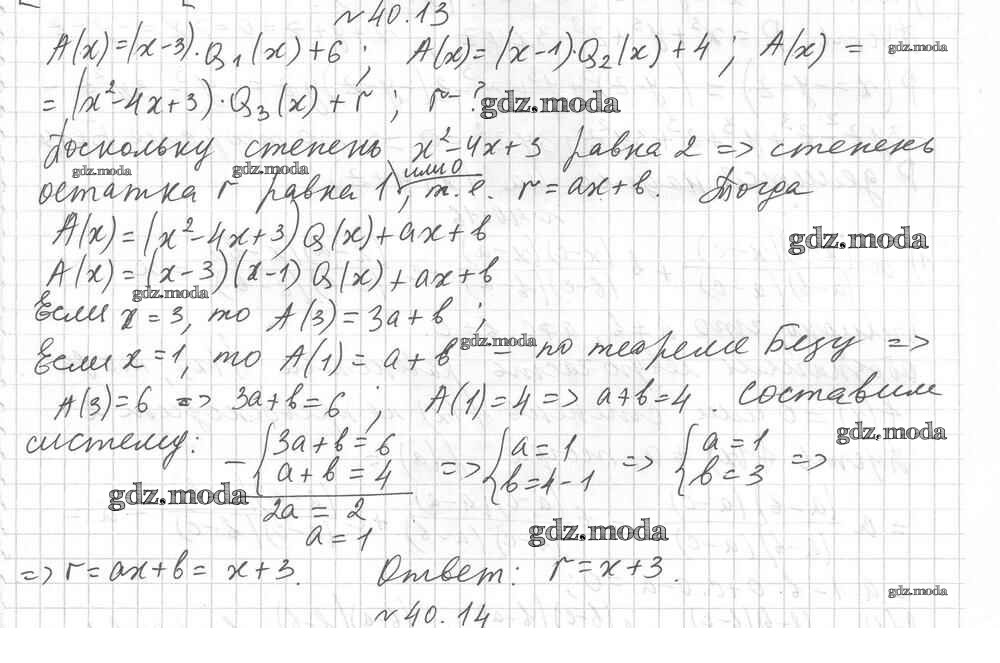 №40.13
A(x)=(x-3)·Q₁(x)+6; A(x)=(x-1)·Q₂(x)+4; A(x)= gdz.moda
=(x²-4x+3)·Q₃(x)+r; r-? gdz.moda
Поскольку степень x²-4x+3 равна 2 => степень
gdz.moda gdz.moda или 0
остатка r равна 1, т.е. r=ax+b. Тогда
A(x)=(x²-4x+3)Q(x)+ax+b
gdz.moda
A(x)=(x-3)(x-1)Q(x)+ax+b
gdz.moda
Если x=3, то A(3)=3a+b;
gdz.moda
Если x=1, то A(1)=a+b – по теореме Безу =>
A(3)=6 => 3a+b=6; A(1)=4 => a+b=4. Составим
gdz.moda
систему: - { 3a+b=6 => { a=1 => { a=1 =>
a+b=4 b=4-1 b=3
gdz.moda
2a=2
gdz.moda
a=1
=> r=ax+b=x+3. Ответ: r=x+3.
gdz.moda
№40.14